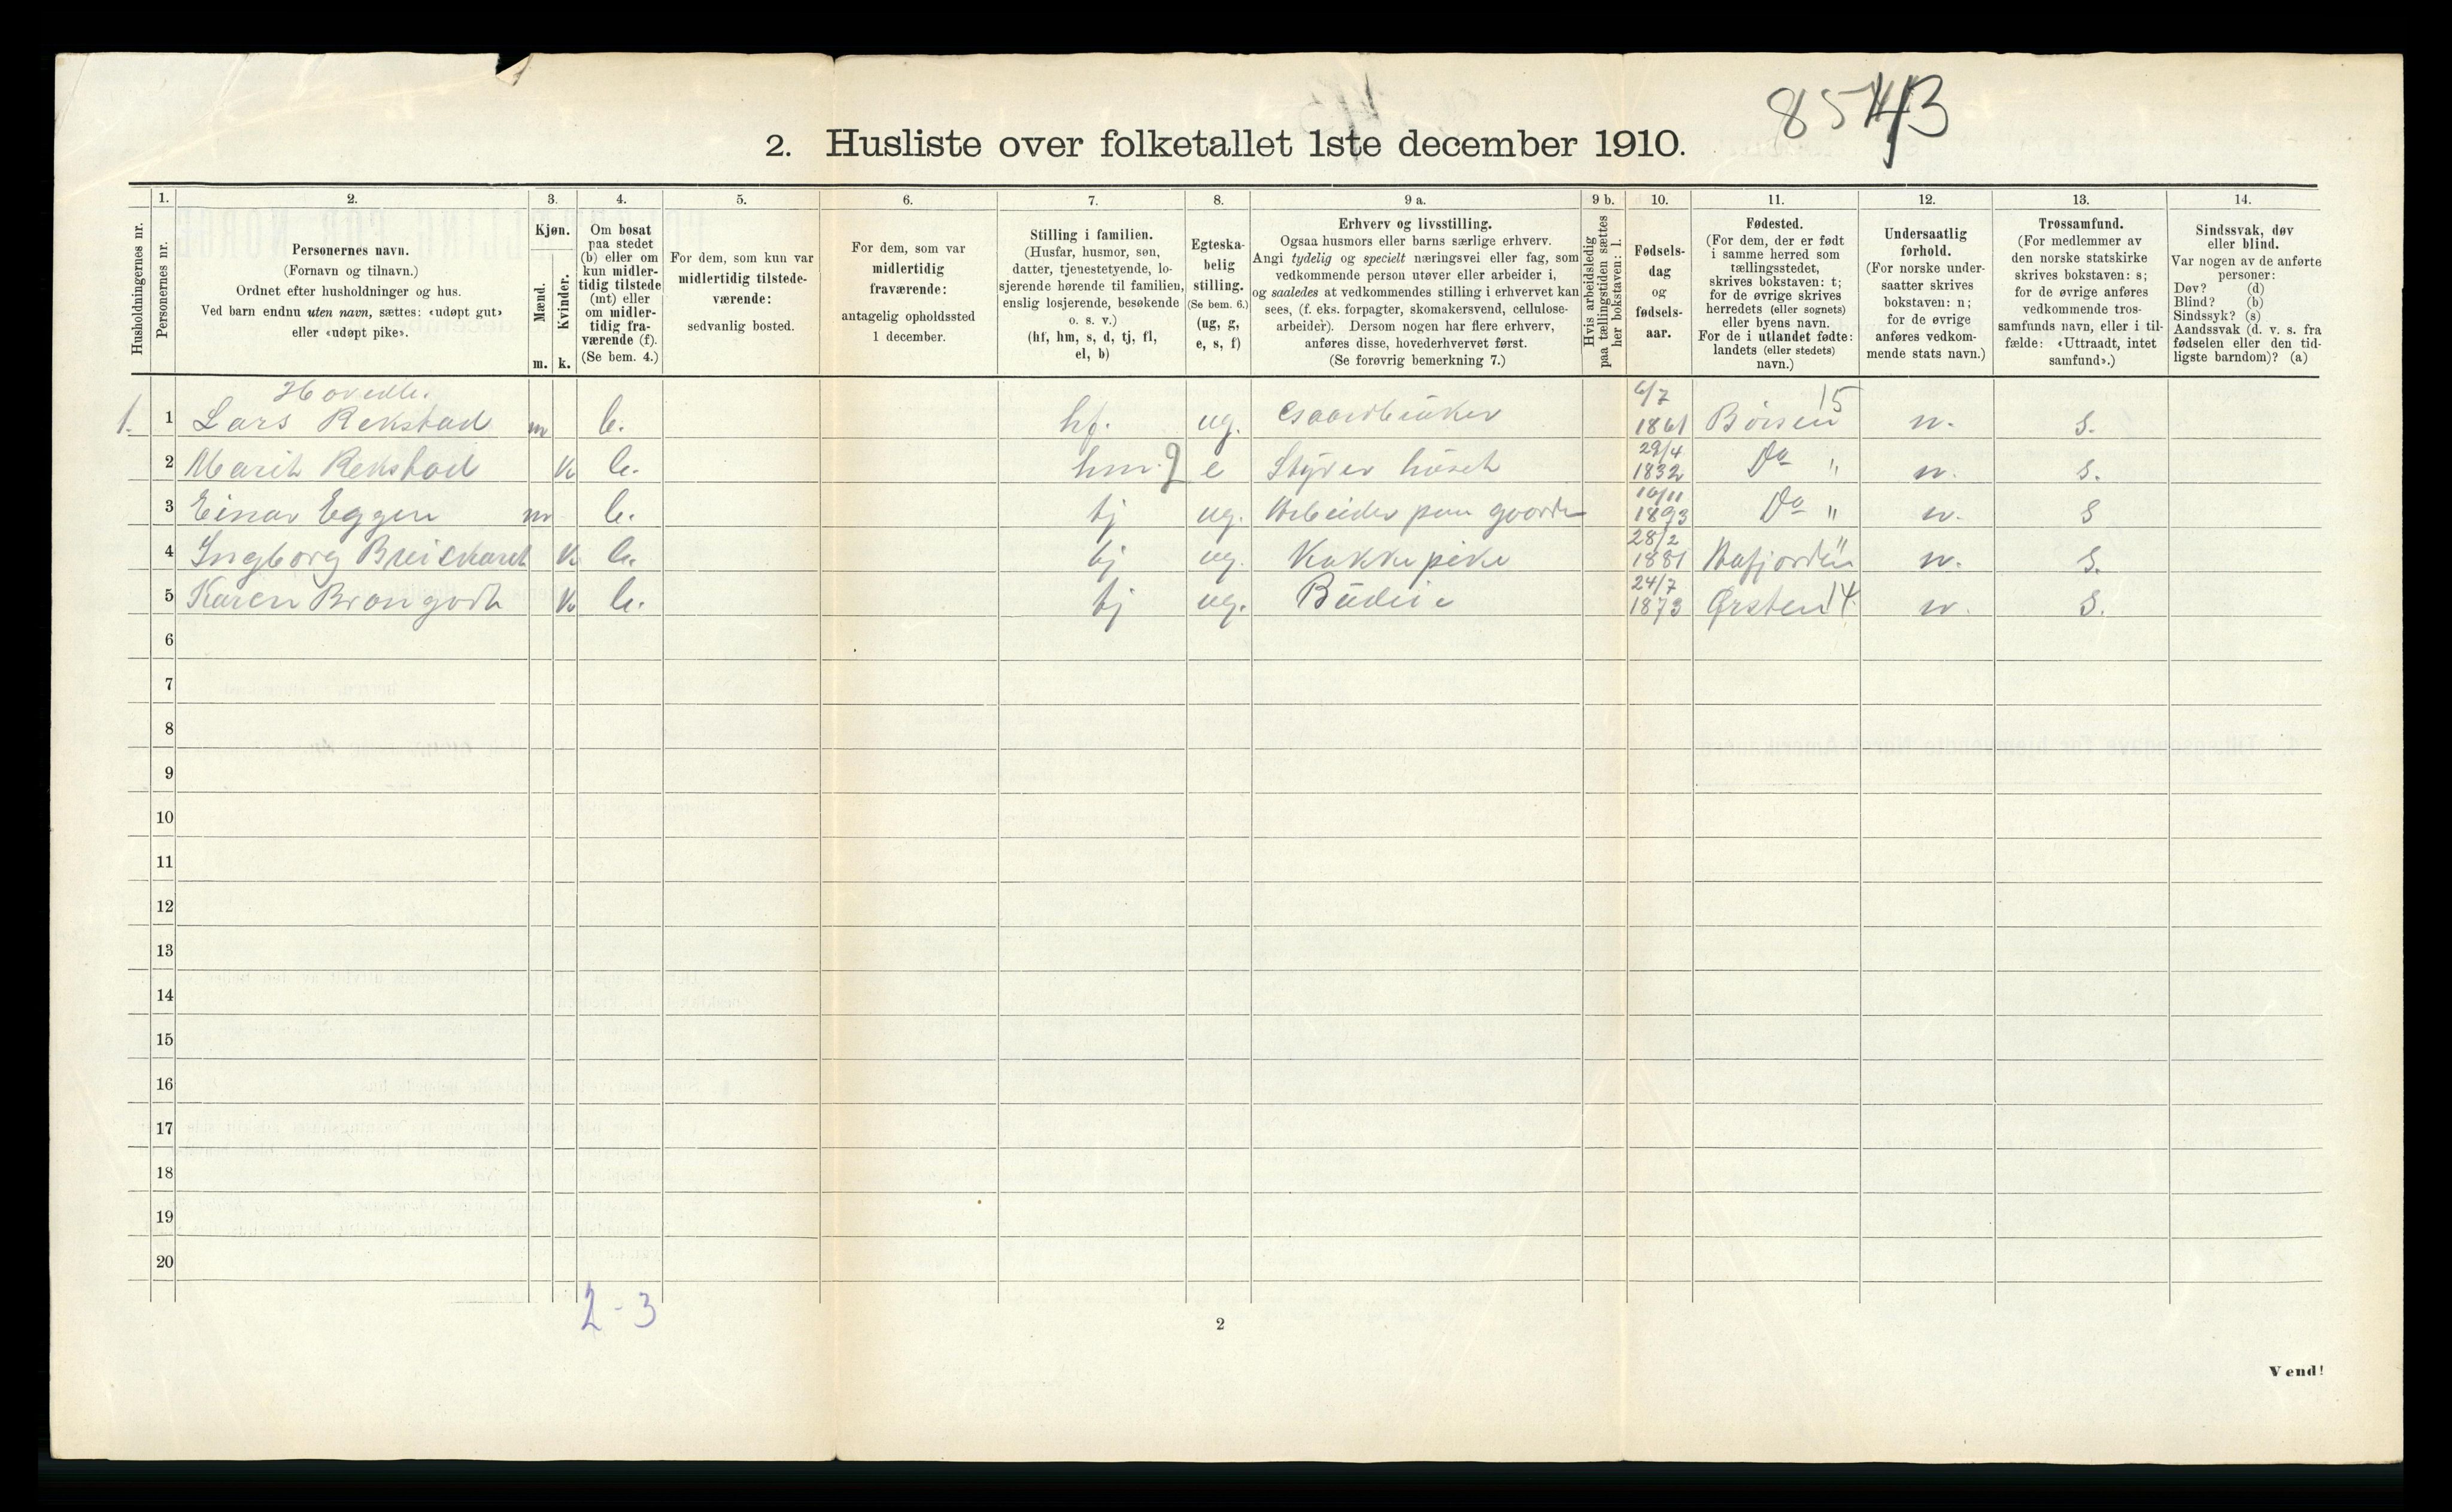 8543
2. Husliste over folketallet 1ste december 1910.
1. 2. 3. 4. 5. 6. 7. 8. 9 a. 9 b. 10. 11. 12. 13. 14.
Husholdningernes nr.
Personernes nr.
Personernes navn.
(Fornavn og tilnavn.)
Ordnet efter husholdninger og hus.
Ved barn endnu uten navn, sættes: «udøpt gut»
eller «udøpt pike».
Kjøn.
Mænd.
Kvinder.
m. k.
Om bosat
paa stedet
(b) eller om
kun midler-
tidig tilstede
(mt) eller
om midler-
tidig fra-
værende (f).
(Se bem. 4.)
For dem, som kun var
midlertidig tilstede-
værende:
sedvanlig bosted.
For dem, som var
midlertidig
fraværende:
antagelig opholdssted
1 december.
Stilling i familien.
(Husfar, husmor, søn,
datter, tjenestetyende, lo-
sjerende hørende til familien,
enslig losjerende, besøkende
o. s. v.)
(hf, hm, s, d, tj, fl,
el, b)
Egteska-
belig
stilling.
(Se bem. 6.)
(ug, g,
e, s, f)
Erhverv og livsstilling.
Ogsaa husmors eller barns særlige erhverv.
Angi tydelig og specielt næringsvei eller fag, som
vedkommende person utøver eller arbeider i,
og saaledes at vedkommendes stilling i erhvervet kan
sees, (f. eks. forpagter, skomakersvend, cellulose-
arbeider). Dersom nogen har flere erhverv,
anføres disse, hovederhvervet først.
(Se forøvrig bemerkning 7.)
Hvis arbeidsledig
paa tællingstiden sættes
her bokstaven: l.
Fødsels-
dag
og
fødsels-
aar.
Fødested.
(For dem, der er født
i samme herred som
tællingsstedet,
skrives bokstaven: t;
for de øvrige skrives
herredets (eller sognets)
eller byens navn.
For de i utlandet fødte:
landets (eller stedets)
navn.)
Undersaatlig
forhold.
(For norske under-
saatter skrives
bokstaven: n;
for de øvrige
anføres vedkom-
mende stats navn.)
Trossamfund.
(For medlemmer av
den norske statskirke
skrives bokstaven: s;
for de øvrige anføres
vedkommende tros-
samfunds navn, eller i til-
fælde: «Uttraadt, intet
samfund».)
Sindssvak, døv
eller blind.
Var nogen av de anførte
personer:
Døv? (d)
Blind? (b)
Sindssyk? (s)
Aandssvak (d. v. s. fra
fødselen eller den tid-
ligste barndom)? (a)
6/7 15
1. 1 Lars Rekstad m b. hf. ug. Gaardbruker 1861 Børsen n. s.
29/4
2 Marit Rekstad k b. hm. e Styrer huset 1832 Do " n. s.
10/11
3 Einar Eggen m b. tj ug. Arbeider paa gaarden 1893 Do " n. s
28/2 "
4 Ingborg k b. tj ug. Kokkepike 1881 n. s.
24/7
5 Karen k b. tj ug. Budeie 1873 Ørsten 14. n. s.
6
7
8
9
10
11
12
13
14
15
16
17
18
19
20
2-3
2
Vend!